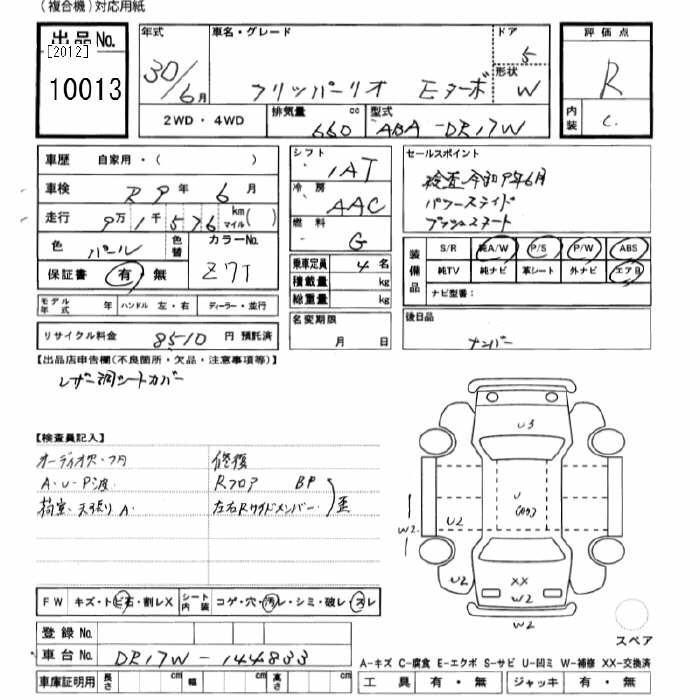 (複合機)対応用紙
出品No.
[2012]
10013
年式
30/6月
車名・グレード
クリッパーリオ Eターボ
ドア
5
形状
W
評価点
R
内装
C
2WD・4WD
排気量 660 cc
型式 ABA-DR17W
車歴 自家用・( )
車検 R9年6月
走行 9万1千576 km マイル( )
色 パール 色替
カラーNo. Z7T
保証書 有・無
シフト
IAT
冷房
AAC
燃料
G
乗車定員 4名
積載量 kg
総重量 kg
セールスポイント
検査 令和9年6月
パワースライド
プッシュスタート
装備品
S/R 純A/W P/S P/W ABS
純TV 純ナビ 革シート 外ナビ エアB
ナビ型番:
モデル年式 年 ハンドル 左・右 ディーラー・並行
リサイクル料金 8510 円 預託済
名変期限
月 日
後日品
ナンバー
【出品店申告欄(不良箇所・欠品・注意事項等)】
レザー調シートカバー
【検査員記入】
オーディオ欠・フタ
A・U・P波
荷室・天張りA
修復
Rフロア BP
左右Rサイドメンバー 歪
U3
U
W2
U2
U2
U2
XX
W2
W2
スペア
FW キズ・トビ石・割レX
シート内装 コゲ・穴・汚レ・シミ・破レ・スレ
登録No.
車台No. DR17W-144833
車庫証明用 長さ cm 幅 cm 高さ cm
A-キズ C-腐食 E-エクボ S-サビ U-凹ミ W-補修 XX-交換済
工具 有・無 ジャッキ 有・無